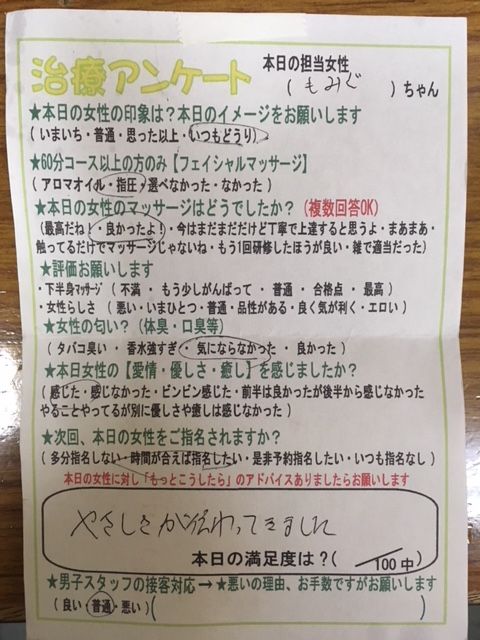 治療アンケート
本日の担当女性
( もみじ )ちゃん
★本日の女性の印象は？本日のイメージをお願いします
( いまいち・普通・思った以上・いつもどうり)
★60分コース以上の方のみ【フェイシャルマッサージ】
( アロマオイル・指圧・選べなかった・なかった )
★本日の女性のマッサージはどうでしたか？(複数回答OK)
(最高だね！・良かったよ！・今はまだまだだけど丁寧で上達すると思うよ・まあまあ・
触ってるだけでマッサージじゃないね・もう1回研修したほうが良い・雑で適当だった)
★評価お願いします
・下半身ﾏｯｻｰｼﾞ ( 不満 ・ もう少しがんばって ・ 普通 ・ 合格点 ・ 最高 )
・女性らしさ ( 悪い・いまひとつ・普通・品性がある・良く気が利く・エロい )
★女性の匂い？(体臭・口臭等)
( タバコ臭い ・ 香水強すぎ ・ 気にならなかった ・ 良かった )
★本日女性の【愛情・優しさ・癒し】を感じましたか？
( 感じた・感じなかった・ビンビン感じた・前半は良かったが後半から感じなかった
やることやってるが別に優しさや癒しは感じなかった )
★次回、本日の女性をご指名されますか？
( 多分指名しない・時間が合えば指名したい・是非予約指名したい・いつも指名なし )
本日の女性に対し「もっとこうしたら」のアドバイスありましたらお願いします
やさしさが伝わってきました
本日の満足度は？( /100 中 )
★男子スタッフの接客対応→★悪いの理由、お手数ですがお願いします
( 良い・普通・悪い ) ( )